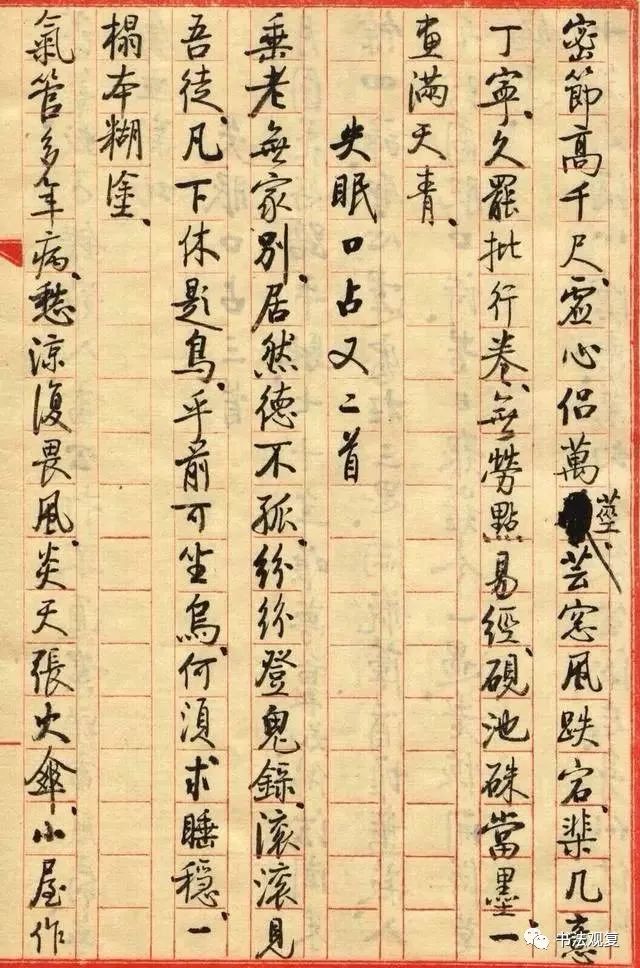 密節高千尺、虛心侶萬莖、芸窓風跌宕、棐几
丁寧、久罷批行卷、無勞點易經、硯池硃當墨、一
畫滿天青、
失眠口占又二首
垂老無家別、居然德不孤、紛紛登鬼錄、滾滾見
吾徒、凡下休題鳥、乎前可坐烏、何須求睡穩、一
榻本糊塗、
氣管多年病、愁涼復畏風、炎天張火傘、小屋作
书法观复